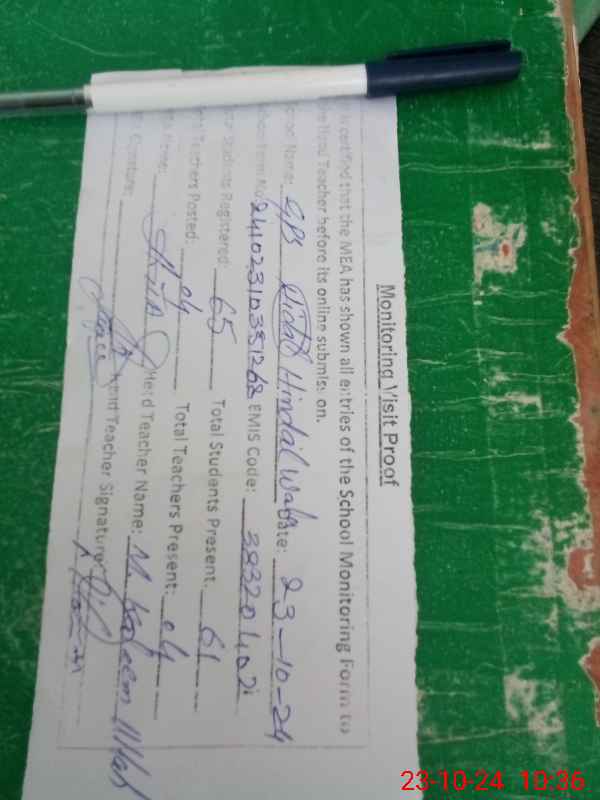 Monitoring Visit Proof
is certified that the MEA has shown all entries of the School Monitoring Form to
Head Teacher before its online submission.
Name: GPS Hindal Wala Date: 23-10-24
24102310351268 EMIS Code: 38320402
Students Registered: 65 Total Students Present: 61
Teachers Posted: 04 Total Teachers Present: 04
Name: Head Teacher Name: M. Kaleem Ullah
Signature: Head Teacher Signature:
23-10-24 10:36